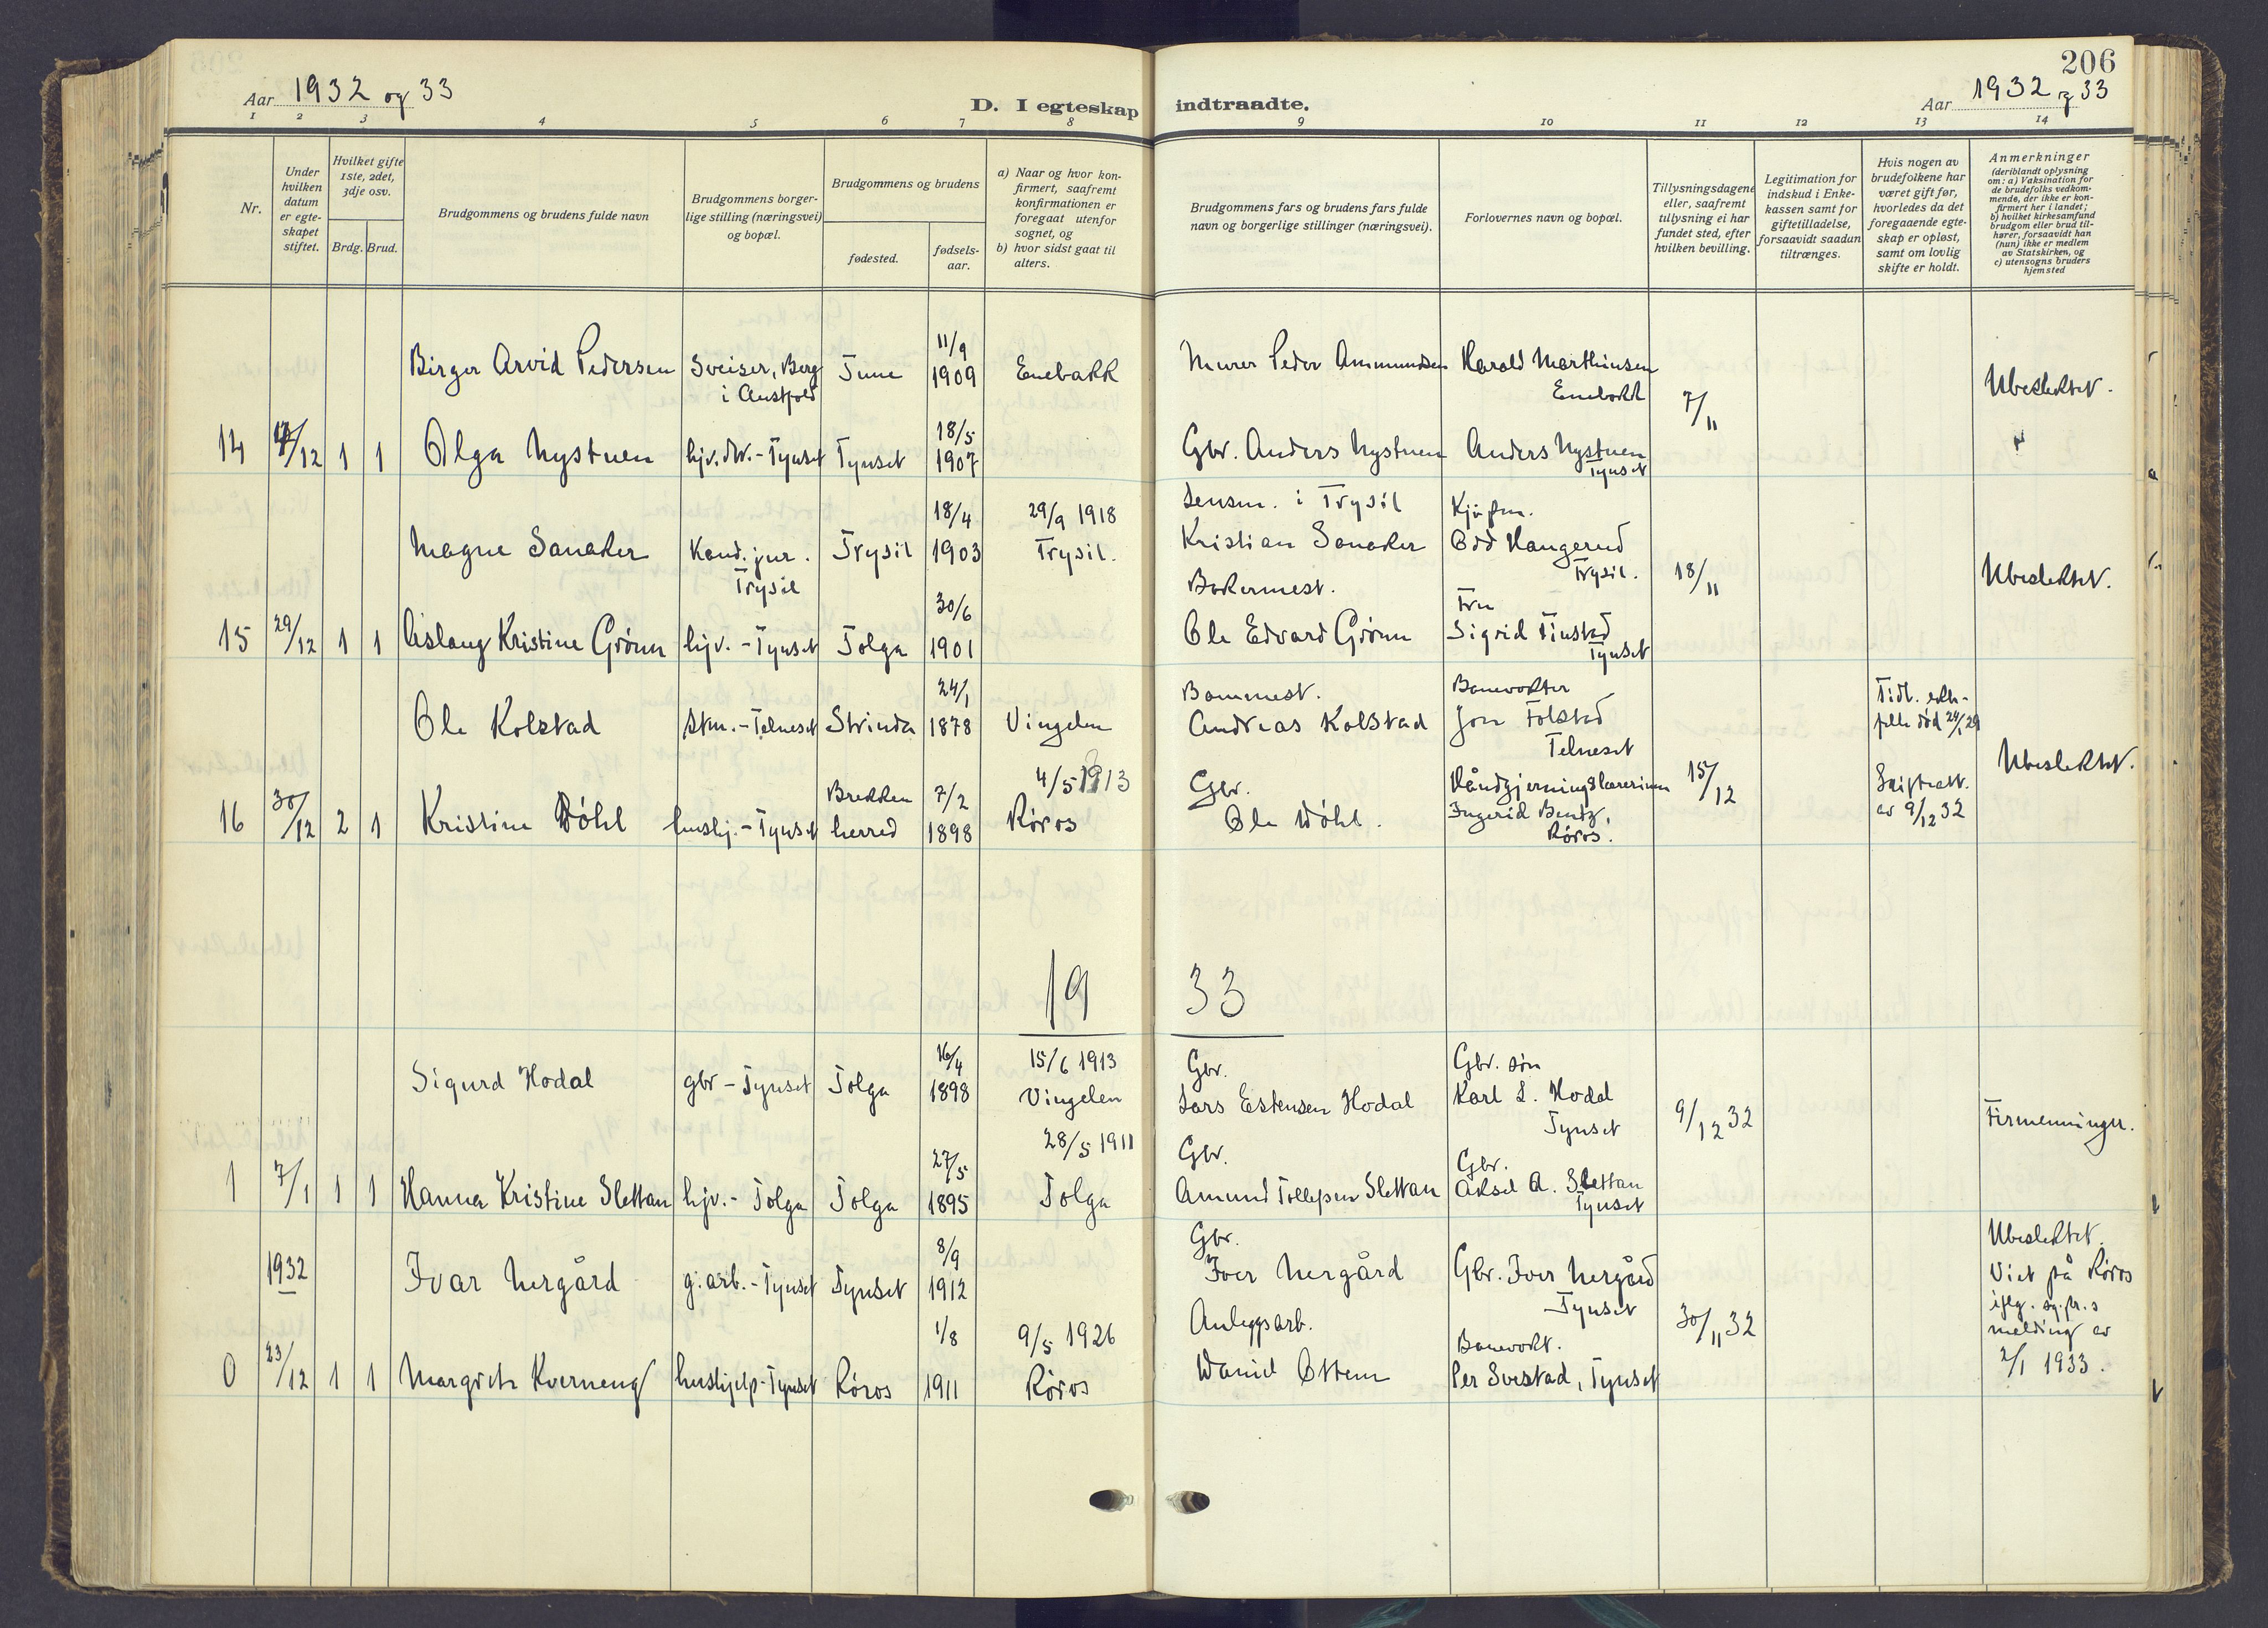 206
Aar 1932 og 33
D. I egteskap indtraadte.
Aar 1932 og 33
1 2 3 4 5 6 7 8 9 10 11 12 13 14
Nr.
Under hvilken datum er egteskapet stiftet.
Hvilket gifte 1ste, 2det, 3dje osv.
Brdg. Brud.
Brudgommens og brudens fulde navn
Brudgommens borgerlige stilling (næringsvei) og bopæl.
Brudgommens og brudens
fødested.
fødselsaar.
a) Naar og hvor konfirmert, saafremt konfirmationen er foregaat utenfor sognet, og
b) hvor sidst gaat til alters.
Brudgommens fars og brudens fars fulde navn og borgerlige stillinger (næringsvei).
Forlovernes navn og bopæl.
Tillysningsdagene eller, saafremt tillysning ei har fundet sted, efter hvilken bevilling.
Legitimation for indskud i Enkekassen samt for giftetilladelse, forsaavidt saadan tiltrænges.
Hvis nogen av brudefolkene har været gift før, hvorledes da det foregaaende egteskap er opløst, samt om lovlig skifte er holdt.
Anmerkninger (deriblandt oplysning om: a) Vaksination for de brudefolks vedkommende, der ikke er konfirmert her i landet; b) hvilket kirkesamfund brudgom eller brud tilhører, forsaavidt han (hun) ikke er medlem av Statskirken, og c) utensogns bruders hjemsted
Birger Arvid Pedersen Sveiser, Berg i Austfold Tune 11/9 1909 Enebakk Murer Peder Ammundsen Harald Marthinsen Enebakk 7/11 Ubeslektet.
14 /12 1 1 Olga Nystuen hjv. dtr. - Tynset Tynset 18/5 1907 Gbr. Anders Nystuen Anders Nystuen Tynset
Magne Sanaker Kand. jur. Trysil Trysil 18/4 1903 29/9 1918 Trysil. Lensm. i Trysil Kristian Sanaker Kjøpm. Odd Haugerud Trysil. 18/11 Ubeslektet.
15 29/12 1 1 Aslaug Kristine Grønn hjv. - Tynset Tolga 30/6 1901 Bakermest. Ole Edvard Grønn Fru Sigrid Tiustad Tynset
Ole Kolstad stm. - Telneset Strinda 24/1 1878 Vingelen Banmest. Andreas Kolstad Banevokter Jon Folstad Telneset 15/12 Tidl. ektefelle død 24/1 29 Ubeslektet.
16 30/12 2 1 Kristine Døhl hushj. - Tynset Brekken herred 7/2 1898 4/5 1913 Røros Gbr. Ole Døhl. Håndgjerningslærerinne Ingerid Bentz, Røros. Skifteatt. av 9/12 32
19 33
Sigurd Hodal gbr - Tynset Tolga 16/4 1898 15/6 1913 Vingelen Gbr. Lars Estensen Hodal Gbr. søn Karl L. Hodal Tynset 9/12 32 Firmenninger.
1 7/1 1 1 Hanna Kristine Slettan hjv. - Tolga Tolga 27/5 1895 28/5 1911 Tolga Gbr. Amund Tollefsen Slettan Gbr. Aksel A. Slettan Tynset
1932 Ivar Nergård g. arb. - Tynset Tynset 8/9 1912 Gbr. Iver Nergård Gbr. Iver Nergård Tynset 30/11 32 Ubeslektet. Viet på Røros iflg. sg.pr.s melding av 2/1 1933.
0 23/12 1 1 Margrete Kverneng hushjelp - Tynset Røros 1/8 1911 9/5 1926 Røros Anleggsarb. Daniel Ottem Banevokt. Per Svestad, Tynset